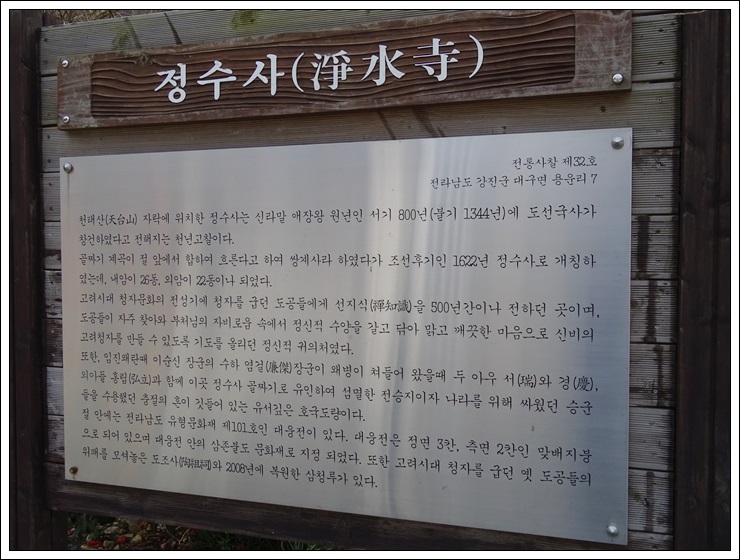 정수사(淨水寺)
전통사찰 제32호
전라남도 강진군 대구면 용운리 7
천태산(天台山) 자락에 위치한 정수사는 신라말 애장왕 원년인 서기 800년(불기 1344년)에 도선국사가
창건하였다고 전해지는 천년고찰이다.
골짜기 계곡이 절 앞에서 합하여 흐른다고 하여 쌍계사라 하였다가 조선후기인 1622년 정수사로 개칭하
였는데, 내암이 26동, 외암이 22동이나 되었다.
고려시대 청자문화의 전성기에 청자를 굽던 도공들에게 선지식(禪知識)을 500년간이나 전하던 곳이며,
도공들이 자주 찾아와 부처님의 자비로움 속에서 정신적 수양을 갈고 닦아 맑고 깨끗한 마음으로 신비의
고려청자를 만들 수 있도록 기도를 올리던 정신적 귀의처였다.
또한, 임진왜란때 이순신 장군의 수하 염걸(廉傑)장군이 왜병이 쳐들어 왔을때 두 아우 서(瑞)와 경(慶),
외아들 홍립(弘立)과 함께 이곳 정수사 골짜기로 유인하여 섬멸한 전승지이자 나라를 위해 싸웠던 승군
들을 수용했던 충절의 혼이 깃들어 있는 유서깊은 호국도량이다.
절 안에는 전라남도 유형문화재 제101호인 대웅전이 있다. 대웅전은 정면 3칸, 측면 2칸인 맞배지붕
으로 되어 있으며 대웅전 안의 삼존불도 문화재로 지정 되었다. 또한 고려시대 청자를 굽던 옛 도공들의
위패를 모셔놓은 도조사(陶祖祠)와 2008년에 복원한 삼청루가 있다.